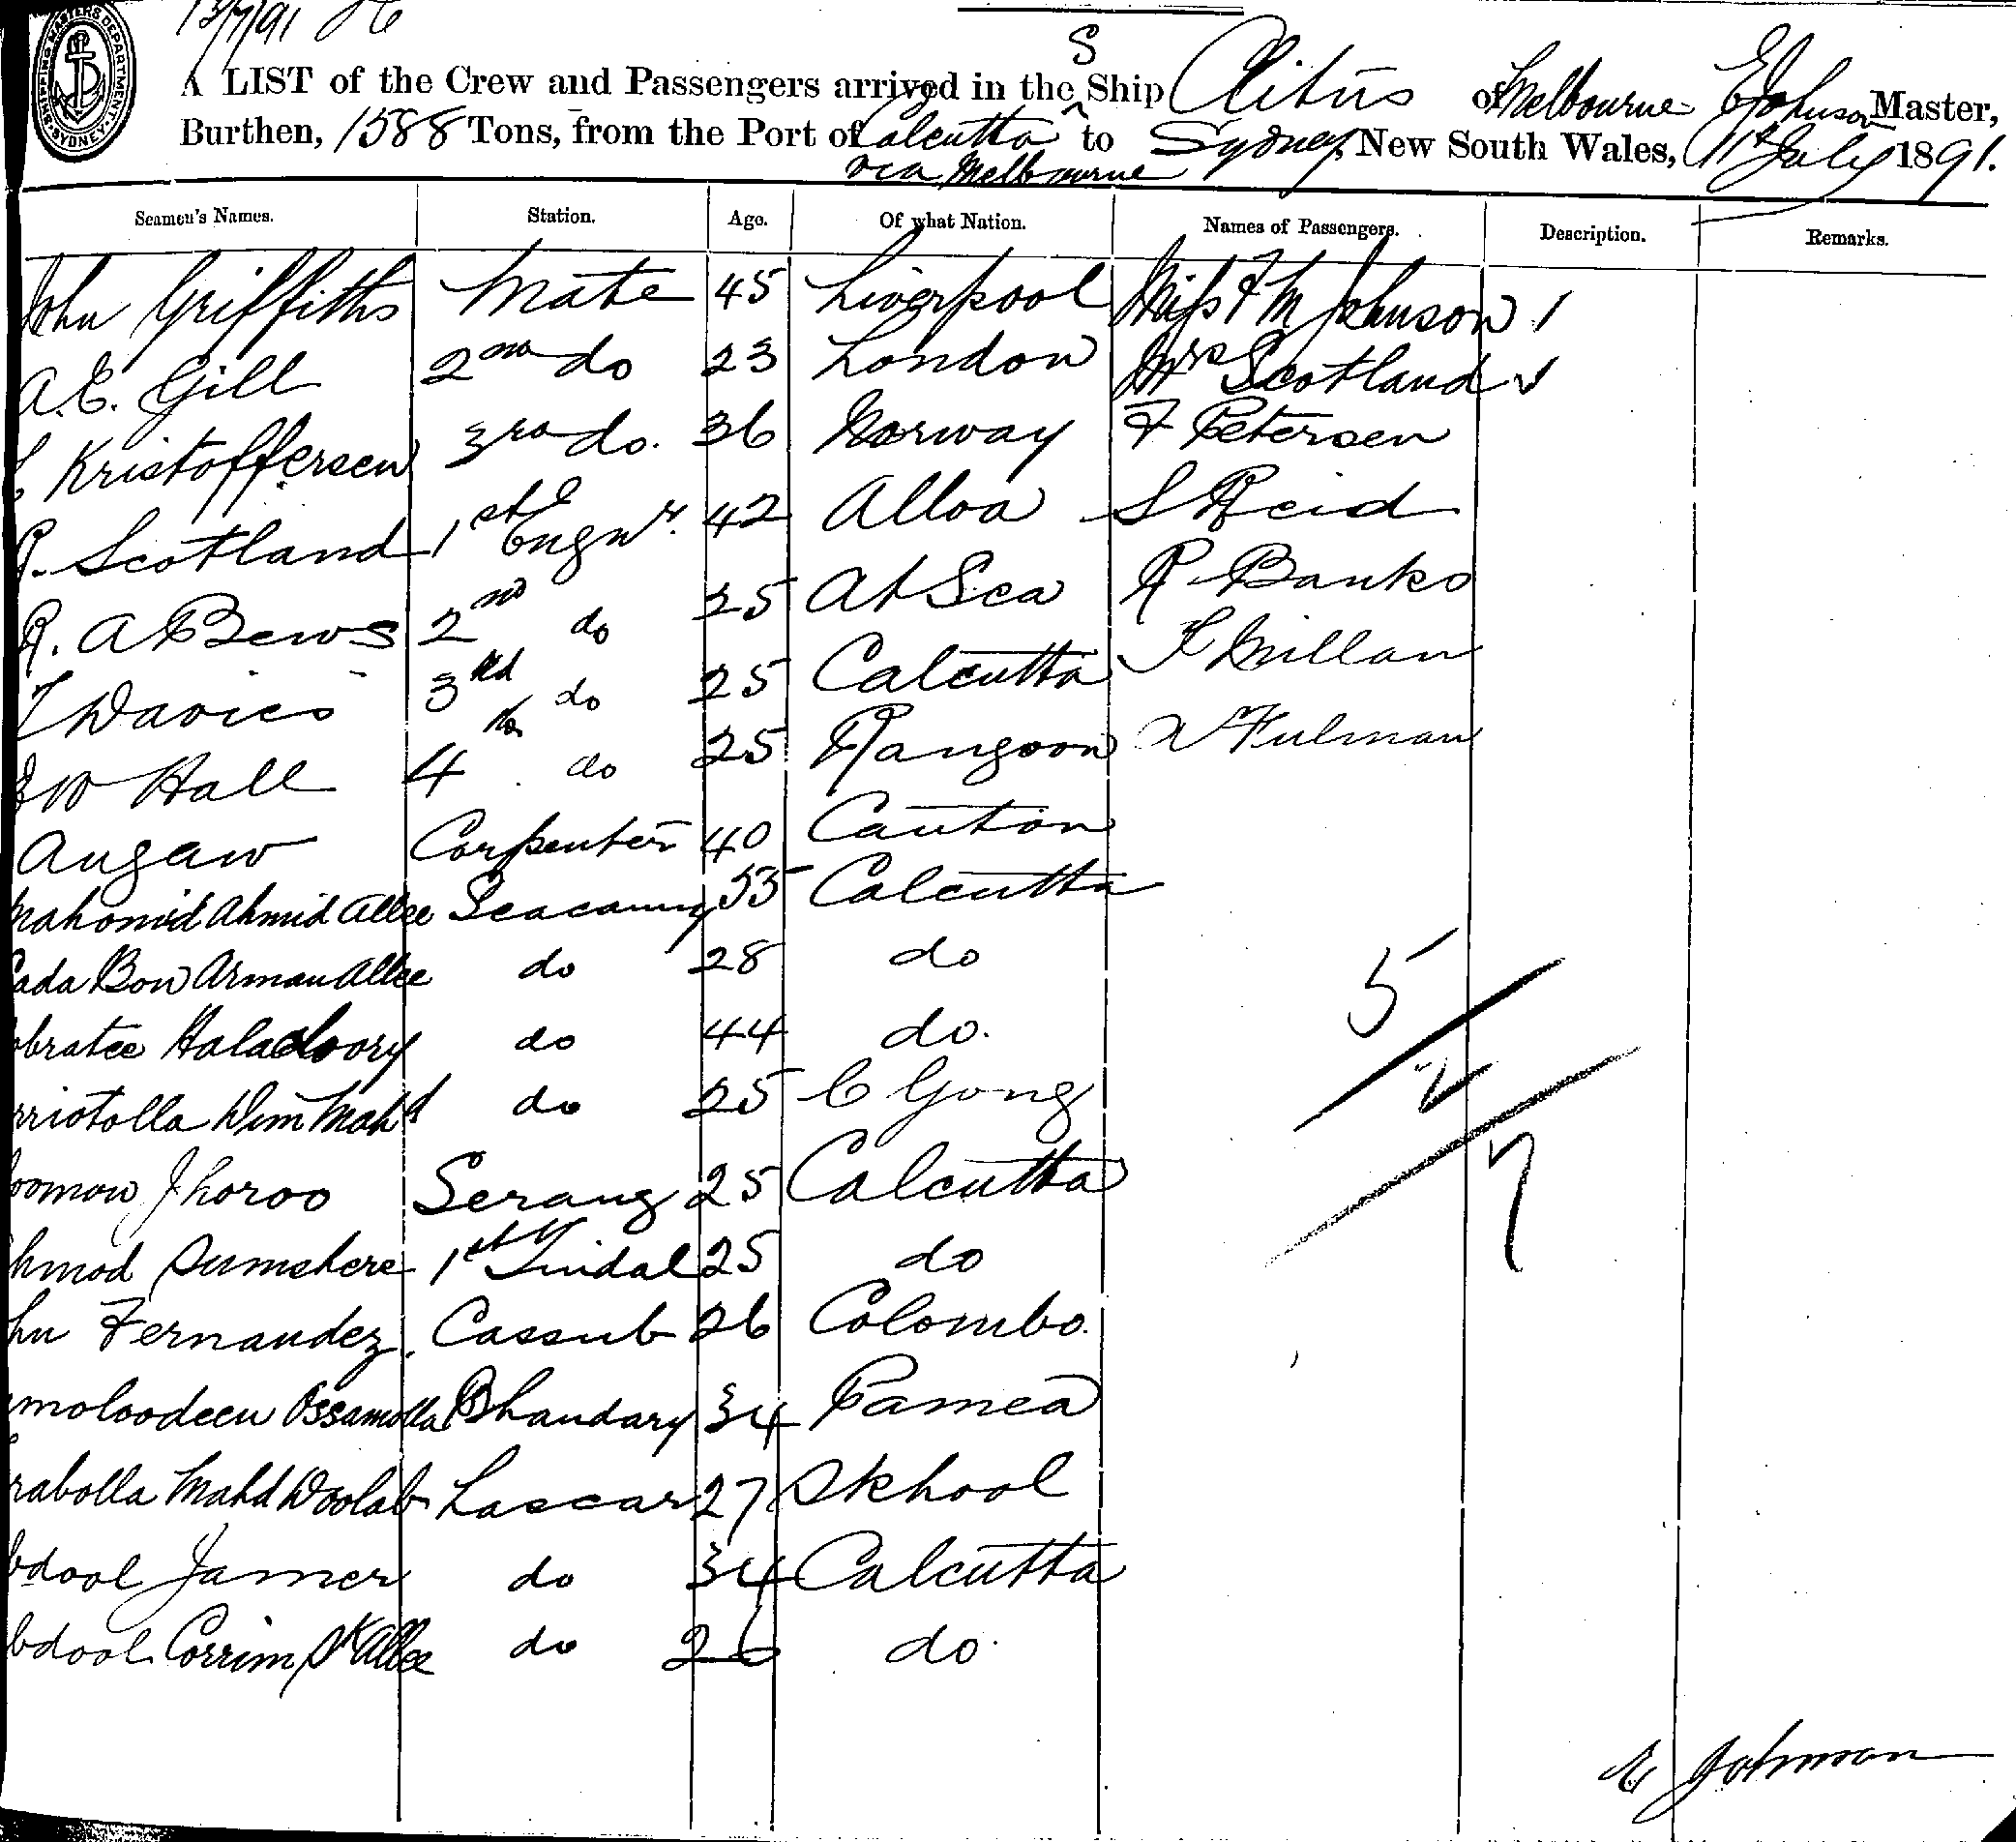 13/7/91
SHIPPING MASTERS DEPARTMENT SYDNEY
S
A LIST of the Crew and Passengers arrived in the ^ Ship Clitus of Melbourne E Johnson Master,
Burthen, 1588 Tons, from the Port of Calcutta to Sydney, New South Wales, 11th July 1891.
via Melbourne
Seamen's Names. Station. Age. Of what Nation. Names of Passengers. Description. Remarks.
John Griffiths Mate 45 Liverpool Miss F M Johnson 1
A. E. Gill 2nd do 23 London Mrs Scotland
Kristoffersen 3rd do. 36 Norway F Petersen
R. Scotland 1st Engnr. 42 Alloa S Reid
R. A Bews 2nd do 25 At Sea R Banks
T Davies 3rd do 25 Calcutta Millan
W Hall 4th do 25 Rangoon Fulman
Augaw Carpenter 40 Canton
Mahomid Ahmid Allee Seacunny 35 Calcutta
ada Bon Arman Allee do 28 do
obratee Haladoory do 44 do.
rriotolla Dim Mahd do 25 C Gong
oomow Jhoroo Serang 25 Calcutta
hmod Sumshere 1st Tindal 25 do
hn Fernandez. Cassub 26 Colombo.
moloodeen Ossamolla Bhandary 34 Pamea
rabolla Mahd Doolab Lascar 27 Skhool
bdool Jamer do 34 Calcutta
bdool Corrim Sk Allee do 26 do.
5
2
7
E Johnson